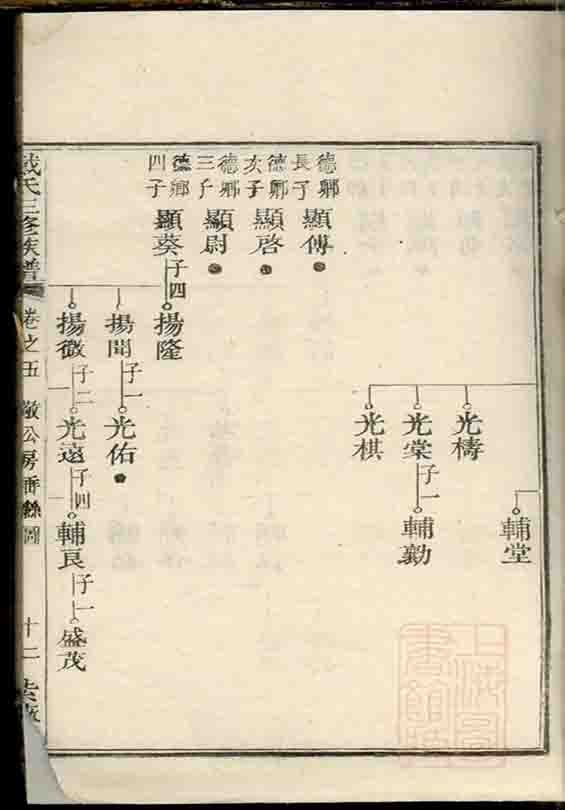 輔堂
光檮
光棠
子一
輔勷
光棋
德鄉
長子
顯傳
德鄉
次子
顯啓
德鄉
三子
顯尉
德鄉
四子
顯葵
子四
揚隆
揚聞
子一
光佑
揚徽
子二
光遠
子四
輔良
子一
盛茂
戴氏三修族普
卷之五
敬公房垂絲圖
十二
上海圖
書館藏